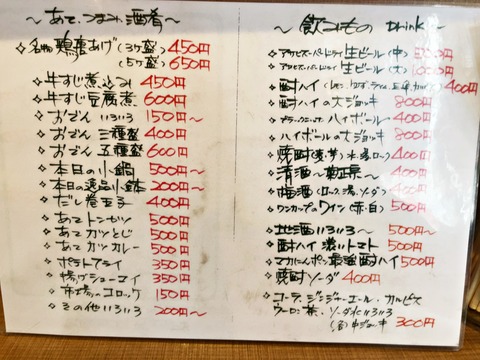 〜あて、つまみ、酒肴〜
名物 鶏唐あげ(3ケ盛) 450円
(5ケ盛) 650円
牛すじ煮込み 450円
牛すじ豆腐煮 600円
おでん いろいろ 150円〜
おでん 三種盛 400円
おでん 五種盛 600円
本日の小鍋 500円〜
本日の逸品小鉢 200円〜
だし巻玉子 400円
あて トンカツ 500円
あて カツとじ 500円
あて カツカレー 500円
ポテトフライ 350円
揚げシューマイ 350円
市場のコロッケ 150円
その他いろいろ 200円〜
〜飲みもの Drink〜
アサヒスーパードライ 生ビール(中)
アサヒスーパードライ 生ビール(大)
酎ハイ 400円
酎ハイの大ジョッキ 800円
ブラックニッカ ハイボール 400円
ハイボールの大ジョッキ 800円
焼酎(麦・芋)水・湯・ロック) 400円
清酒〜菊正宗〜 400円
梅酒(ロック、湯、ソーダ) 400円
ワンカップのワイン(赤・白) 500円
地酒いろいろ 500円〜
酎ハイ 濃いトマト 500円
マカにんにくポン最強酎ハイ 500円
焼酎ソーダ 400円
コーラ、ジンジャーエール・カルピス
ウーロン茶・ソーダ水いろいろ
(各)中ジョッキ 300円